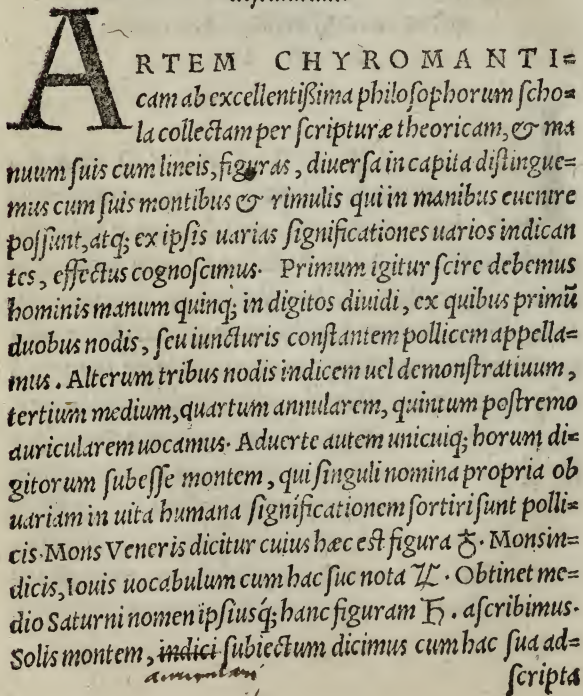 ARTEM CHYROMANTI=
cam ab excellentißima philoſophorum ſcho=
la collectam per ſcripturæ theoricam, & ma
nuum ſuis cum lineis, figuras, diuerſa in capita diſtingue=
mus cum ſuis montibus & rimulis qui in manibus euenire
poſſunt, atq; ex ipſis uarias ſignificationes uarios indican
tes, effectus cognoſcimus. Primum igitur ſcire debemus
hominis manum quinq; in digitos diuidi, ex quibus primū
duobus nodis, ſeu iuncturis conſtantem pollicem appella=
mus. Alterum tribus nodis indicem uel demonſtratiuum,
tertium medium, quartum annularem, quintum poſtremo
auricularem uocamus. Aduerte autem unicuiq; horum di=
gitorum ſubeſſe montem, qui ſinguli nomina propria ob
uariam in uita humana ſignificationem ſortiri ſunt polli=
cis. Mons Veneris dicitur cuius hæc eſt figura ♀. Mons in=
dicis, Iouis uocabulum cum hac ſuc nota ♃. Obtinet me=
dio Saturni nomen ipſiusq́; hanc figuram ♄. aſcribimus.
Solis montem, indici ſubiectum dicimus cum hac ſua ad=
ſcripta